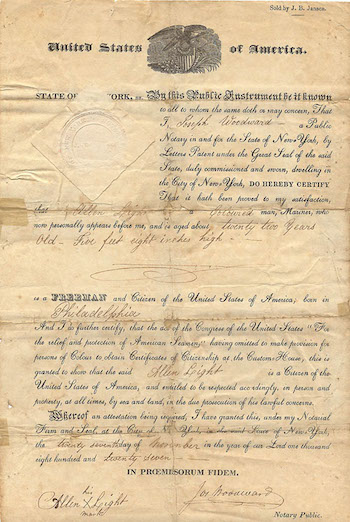 Sold by J. B. Jansen.
United States of America.
STATE OF YORK, ss. By this Public Instrument be it known
to all to whom the same doth or may concern, That
I, Joseph Woodward a Public
Notary in and for the State of New-York, by
Letters Patent under the Great Seal of the said
State, duly commissioned and sworn, dwelling in
the City of New-York, DO HEREBY CERTIFY
That it hath been proved to my satisfaction,
that Allen Light a Coloured man, Mariner, who
now personally appears before me, and is aged about twenty two Years
Old - Five feet eight inches high
is a FREEMAN and Citizen of the United States of America; born in
Philadelphia
And I do further certify, that the act of the Congress of the United States "For
the relief and protection of American Seamen," having omitted to make provision for
persons of Colour to obtain Certificates of Citizenship at the Custom-House, this is
granted to them that the said Allen Light is a Citizen of the
United States of America, and entitled to be respected accordingly, in person and
property, at all times, by sea and land, in the due prosecution of his lawful concerns.
Whereof an attestation being required, I have granted this, under my Notarial
Firm and Seal, at the City of York, in the said State of New-York,
the twenty seventh day of November in the year of our Lord one thousand
eight hundred and twenty seven
IN PRÆMISORUM FIDEM.
his
Allen X Light
mark
Jos Woodward
Notary Public.